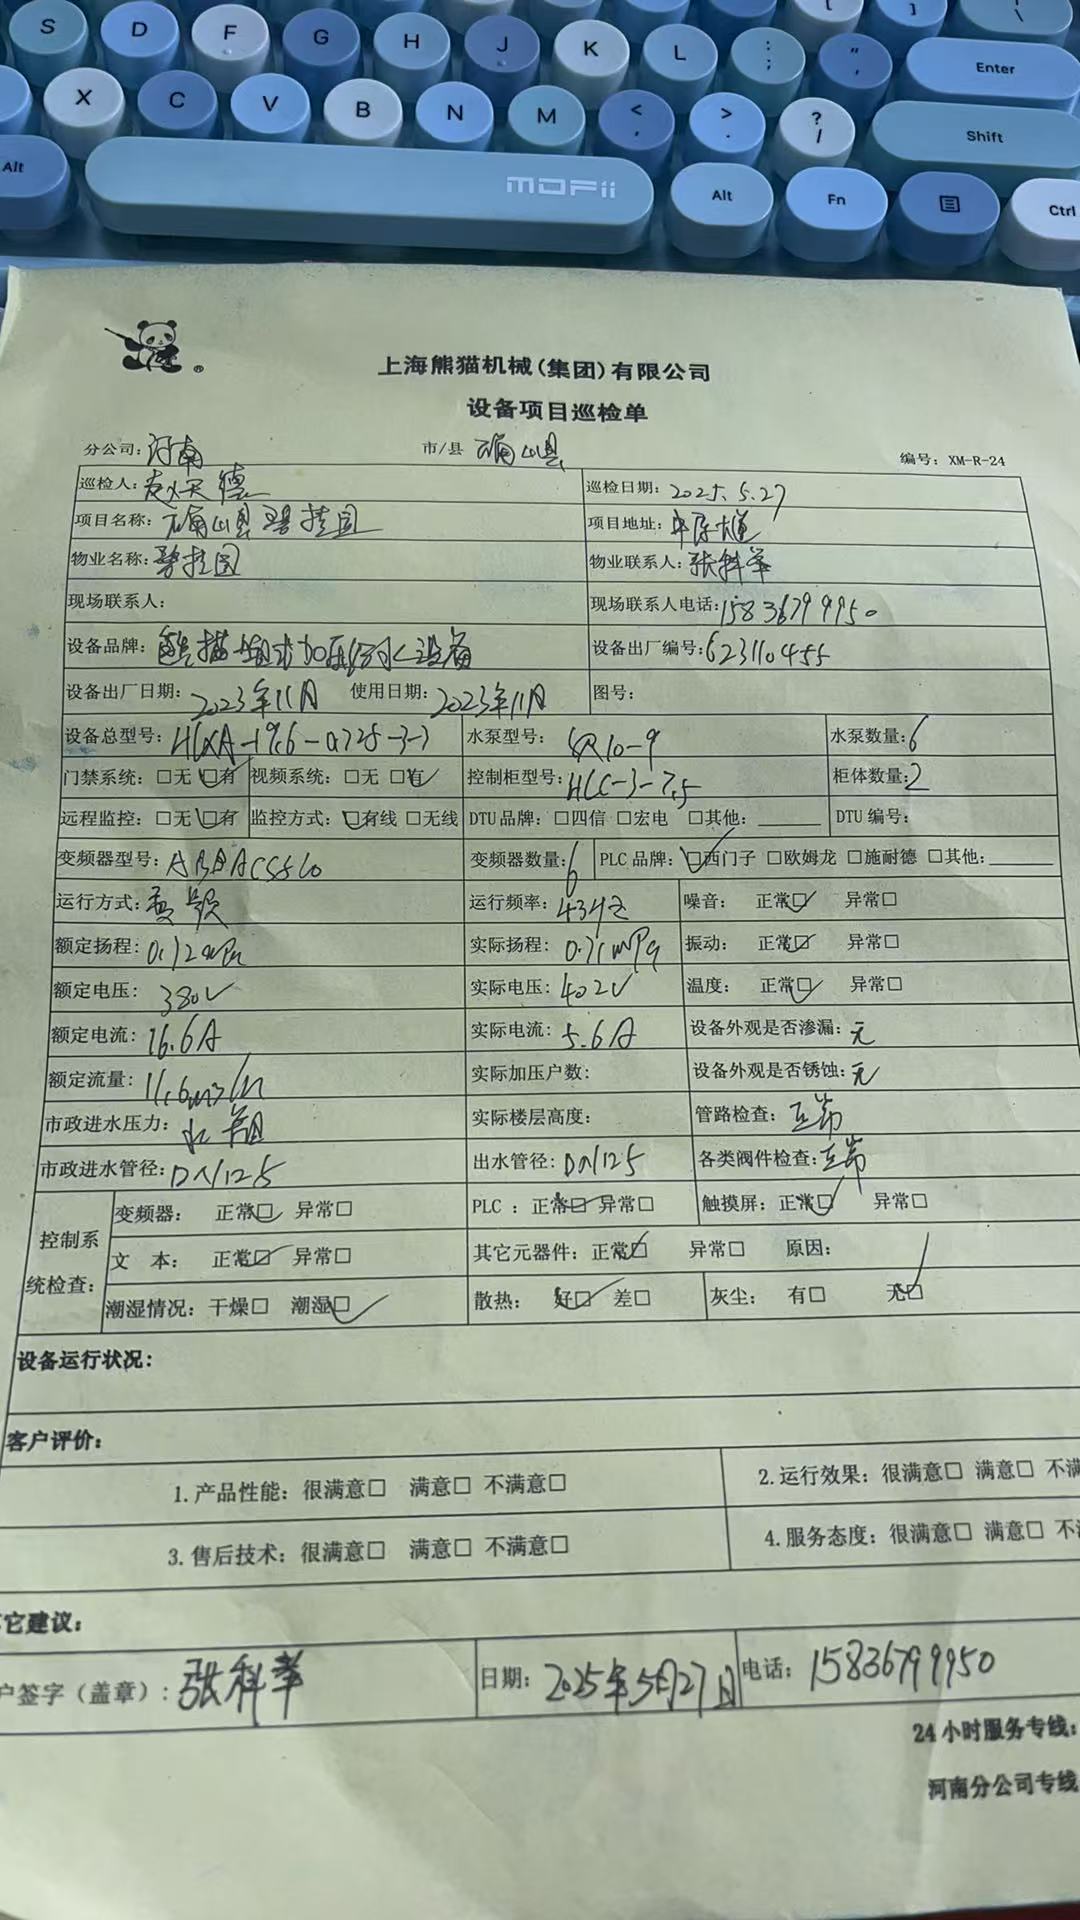 S D F G H J K L : ; " ' [ ] \ Enter
X C V B N M < , > . ? / Shift
Alt MOFii Alt Fn Ctrl
上海熊猫机械(集团)有限公司
设备项目巡检单
分公司: 河南 市/县 确山县 编号: XM-R-24
巡检人: 巡检日期: 2025.5.27
项目名称: 确山县碧桂园 项目地址: 中原大道
物业名称: 碧桂园 物业联系人: 张科举
现场联系人: 现场联系人电话: 15836799950
设备品牌: 熊猫 加压给水设备 设备出厂编号: 623110455
设备出厂日期: 2023年11月 使用日期: 2023年11月 图号:
设备总型号: 水泵型号: 10-9 水泵数量: 6
门禁系统: □无 ☑有 视频系统: □无 ☑有 控制柜型号: HLC-3-7.5 柜体数量: 2
远程监控: □无 ☑有 监控方式: ☑有线 □无线 DTU品牌: □四信 □宏电 □其他: DTU编号:
变频器型号: ABB ACS510 变频器数量: 6 PLC品牌: ☑西门子 □欧姆龙 □施耐德 □其他:
运行方式: 变频 运行频率: 43Hz 噪音: 正常☑ 异常□
额定扬程: 实际扬程: 0.71mPa 振动: 正常☑ 异常□
额定电压: 380V 实际电压: 402V 温度: 正常☑ 异常□
额定电流: 16.6A 实际电流: 5.6A 设备外观是否渗漏: 无
额定流量: 实际加压户数: 设备外观是否锈蚀: 无
市政进水压力: 水箱 实际楼层高度: 管路检查: 正常
市政进水管径: DN125 出水管径: DN125 各类阀件检查: 正常
控制系统检查: 变频器: 正常☑ 异常□ PLC: 正常☑ 异常□ 触摸屏: 正常☑ 异常□
文 本: 正常☑ 异常□ 其它元器件: 正常☑ 异常□ 原因:
潮湿情况: 干燥□ 潮湿☑ 散热: 好☑ 差□ 灰尘: 有□ 无☑
设备运行状况:
客户评价:
1.产品性能: 很满意□ 满意□ 不满意□ 2.运行效果: 很满意□ 满意□ 不满
3.售后技术: 很满意□ 满意□ 不满意□ 4.服务态度: 很满意□ 满意□ 不
它建议:
户签字(盖章): 张科举 日期: 2025年5月27日 电话: 15836799950
24小时服务专线:
河南分公司专线